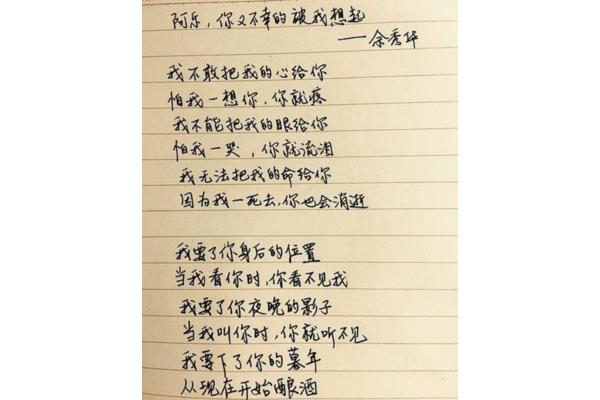 阿乐，你又不幸的被我想起
——余秀华
我不敢把我的心给你
怕我一想你，你就疼
我不能把我的眼给你
怕我一哭，你就流泪
我无法把我的命给你
因为我一死去，你也会消逝
我要了你身后的位置
当我看你时，你看不见我
我要了你夜晚的影子
当我叫你时，你就听不见
我要下了你的暮年
从现在开始酿酒